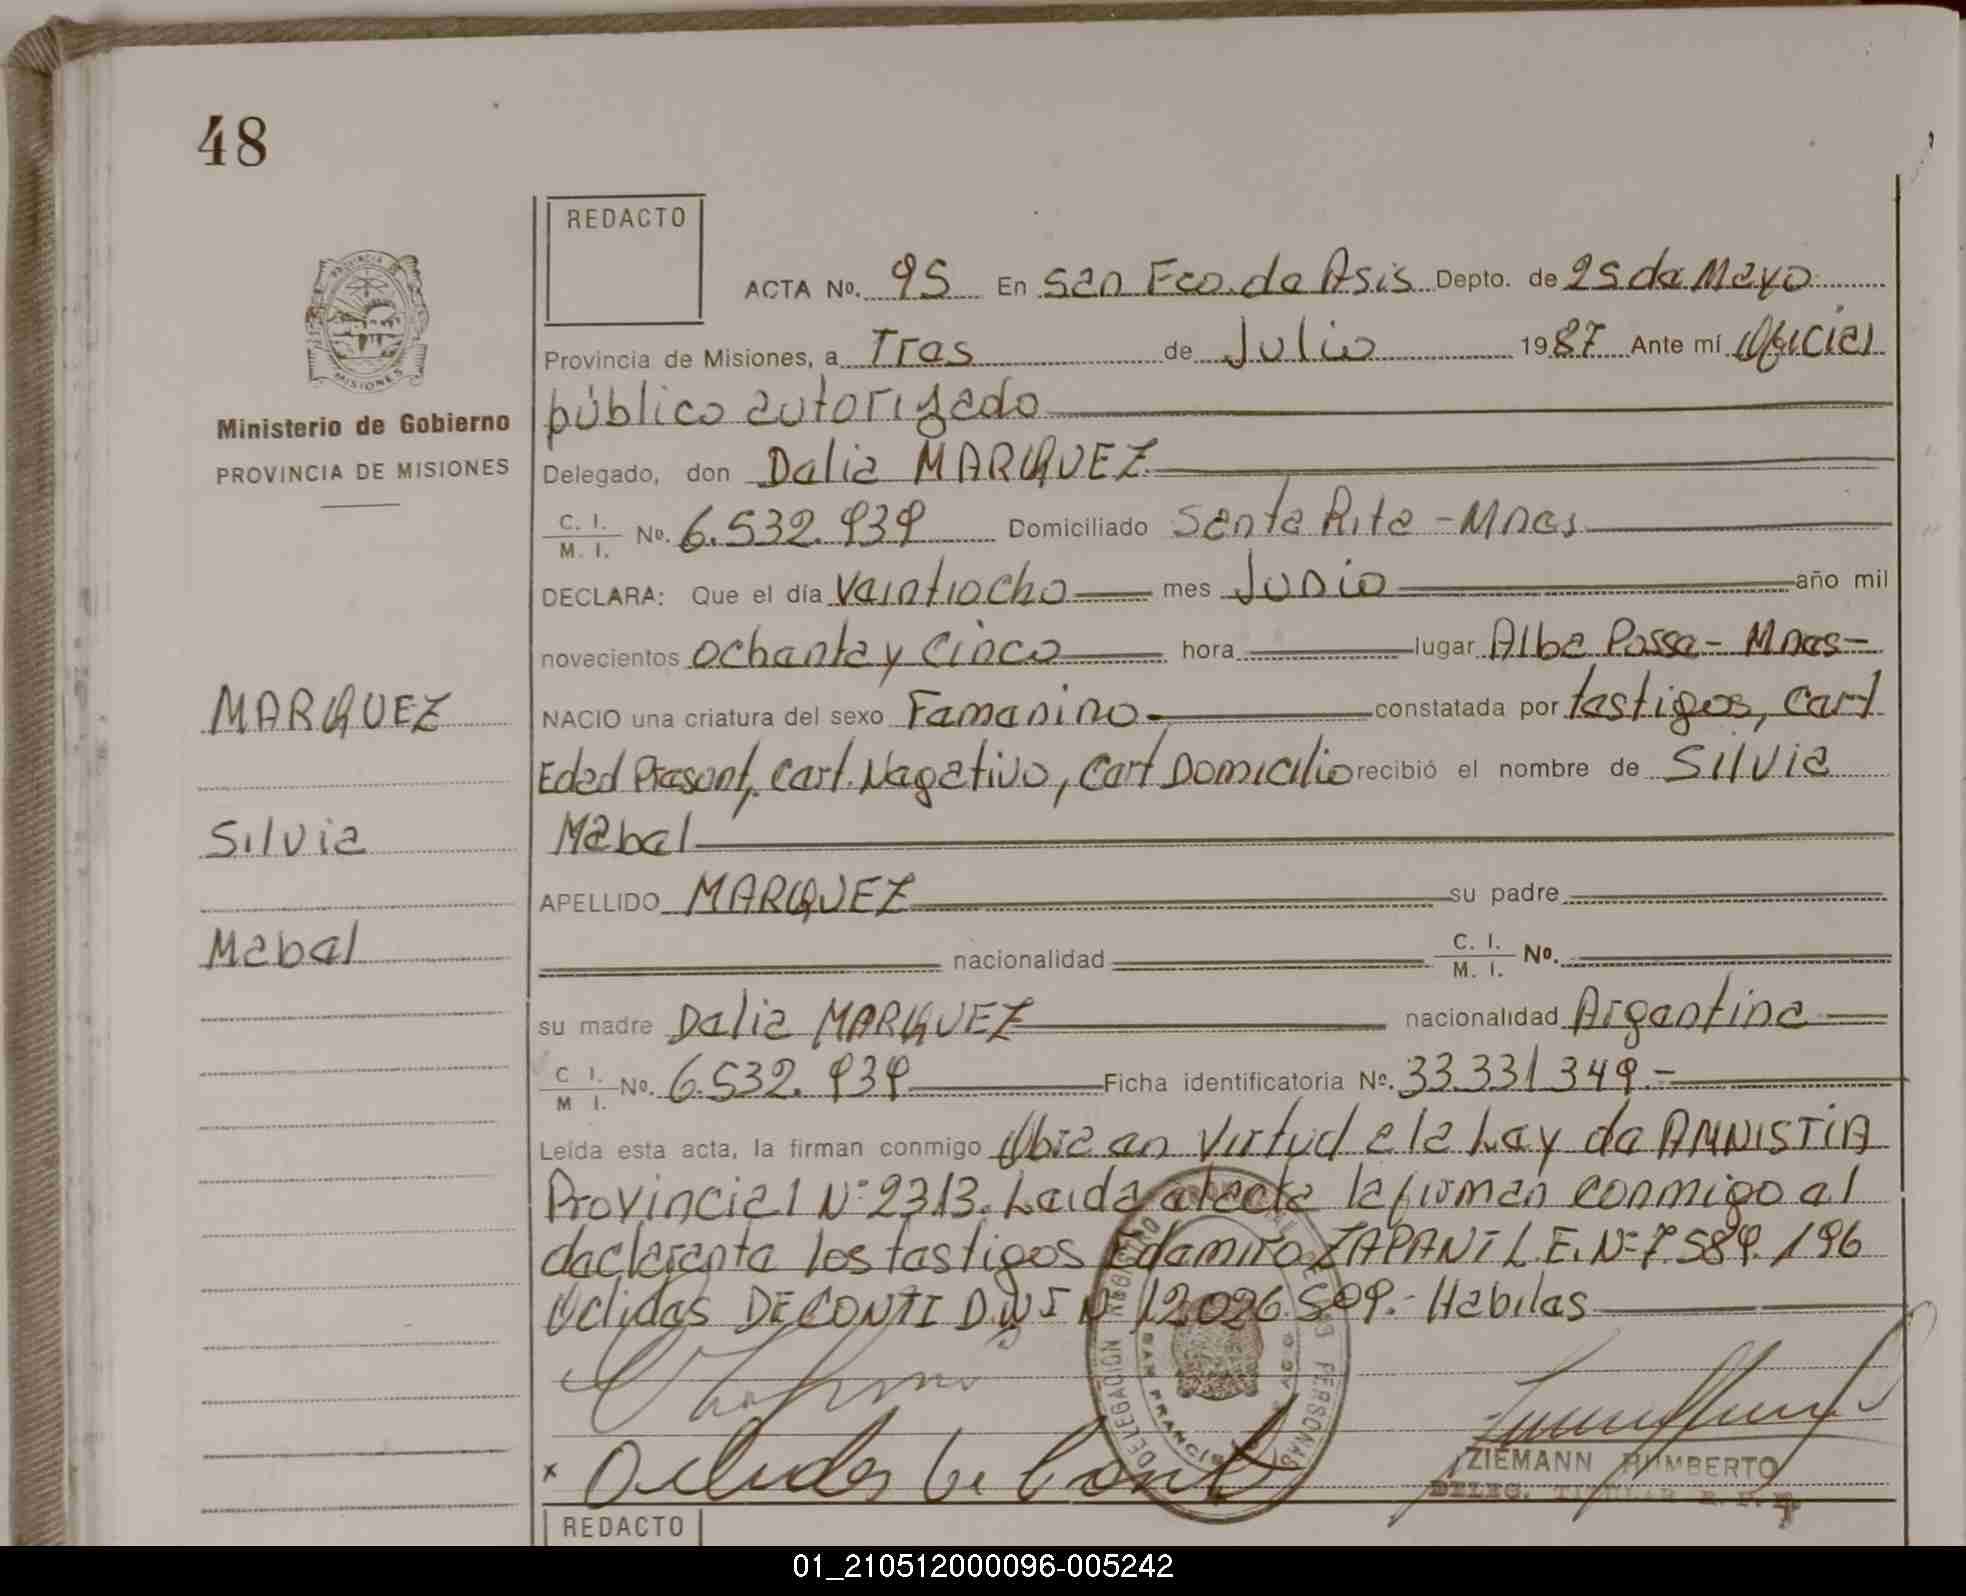 48
REDACTO
ACTA No. 95 En San Fco. de Asis Depto. de 25 de Mayo
Provincia de Misiones, a Tres de Julio 1987 Ante mí Oficial
público autorizado
Ministerio de Gobierno
PROVINCIA DE MISIONES
Delegado, don Dalia MARQUEZ
C. I. M. I. No. 6.532.939 Domiciliado Santa Rita - Mnes
DECLARA: Que el día veintiocho mes Junio año mil
novecientos ochenta y cinco hora lugar Alba Posse - Mnes -
MARQUEZ
NACIO una criatura del sexo Femenino constatada por testigos, Cert
Edad Present, Cert. Negativo, Cert Domicilio recibió el nombre de Silvia
Silvia
Mabel
APELLIDO MARQUEZ su padre
Mabel
nacionalidad C. I. M. I. No.
su madre Dalia MARQUEZ nacionalidad Argentina
C I. M I. No. 6.532.939 Ficha identificatoria No. 33.331 349.-
Leída esta acta, la firman conmigo Obra en virtud a la Ley de AMNISTIA
Provincial Nº 2313. Leida el acta la firman conmigo el
declarante los testigos Edemiro ZAPANI L.E. Nº 7.589.196
Oclides DECONTI D.N I Nº 12.026.509.- Habiles
DELEGACION REGISTRO PROVINCIAL DE LAS PERSONAS
SAN FRANCISCO DE ASIS
Oclides De Conti
ZIEMANN HUMBERTO
DELEG. TITULAR R. P. P.
REDACTO
PROVINCIA DE
MISIONES
01_210512000096-005242